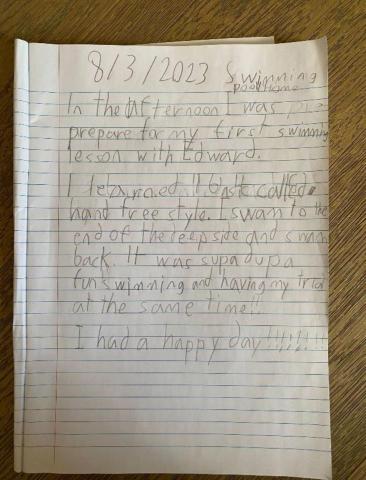 8/3/2023 Swimming
pool home
In the afternoon I was pre
prepare for my first swimming
lesson with Edward.
I learned called
hand free style. I swam to the
end of the deep side and swam
back. It was supa dupa
fun swimming and having my trial
at the same time!!
I had a happy day!!!!!!!!